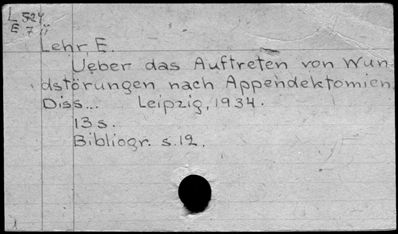 L 524
E 7
Lehr, E.
Ueber das Auftreten von Wun
dstörungen nach Appendektomien
Diss... Leipzig, 1934.
13 s.
Bibliogr. s.12.